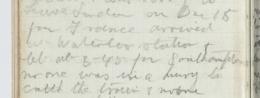 on Dec 18
for France arrived
at Waterloo station
left at 3-45 for Southampton
no one was in a hurry to
catch the train & no one